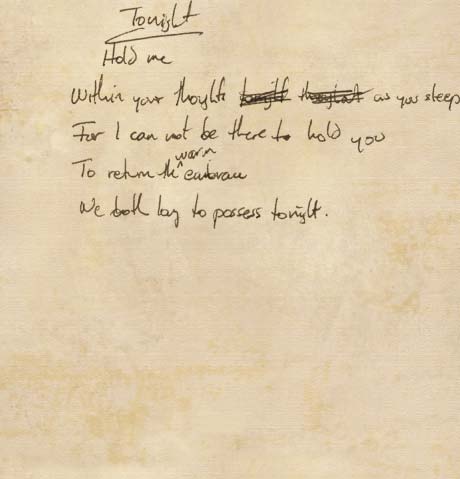 Tonight
Hold me
Within your thoughts tonight throughout as you sleep
For I can not be there to hold you
To return the warm embrace
We both long to possess tonight.